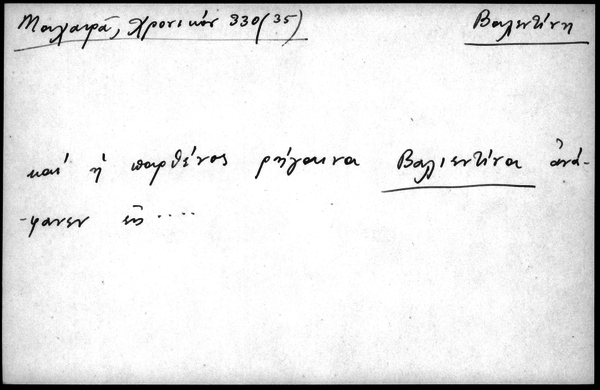 Μαχαιρά, Χρονικόν 330 (35) Βαλεντίνη
καί ἡ παρθένος ρήγαινα Βαλιεντίνα ἀνά-
-φανεν εἰς ....